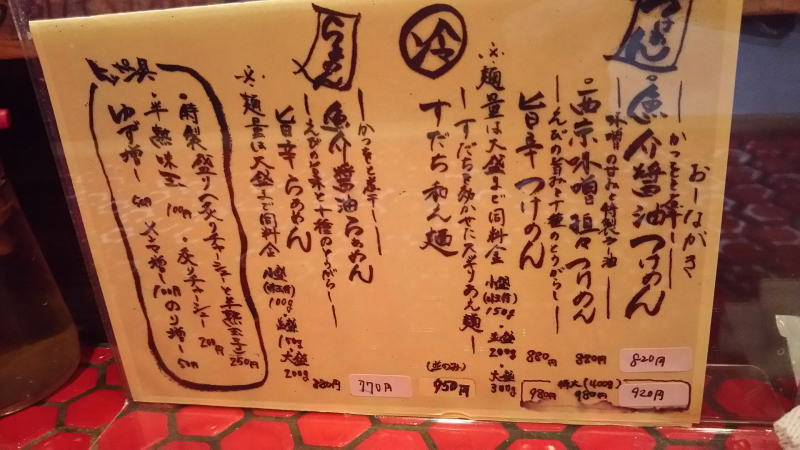 おーながき
つけめん
ーかつおと煮干ー
・魚介醤油つけめん
820円
920円
ー味噌の甘みと特製ラー油
・西京味噌担々つけめん
880円
特大(400g)
980円
ーえびの旨みと十種のとうがらしー
旨辛つけめん
880円
980円
※麺量は大盛まで同料金
小盛
150g
・並盛
200g
・大盛
300g
冷
ーすだちを効かせた冷やしあえ麺ー
すだち和え麺
(並のみ)
950円
らぁめん
ーかつおと煮干ー
魚介醤油らぁめん
770円
ーえびの旨味と十種のとうがらしー
旨辛らぁめん
880円
※麺量は大盛まで同料金
小盛
100g
並盛
150g
大盛
200g
・特製盛り(炙りチャーシューと半熟玉子)
250円
・半熟味玉
100円
・炙りチャーシュー
200円
ゆず増し
50円
メンマ増し
100円
のり増し
50円